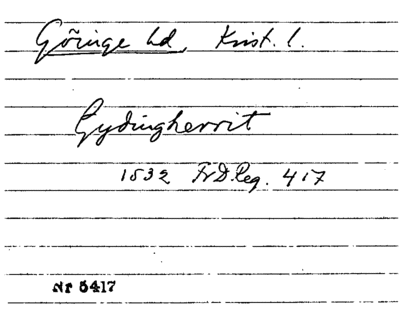 Göinge hd, Krist. l.
Gydingherrit
1532 FrD.Reg. 417
Nr 5417